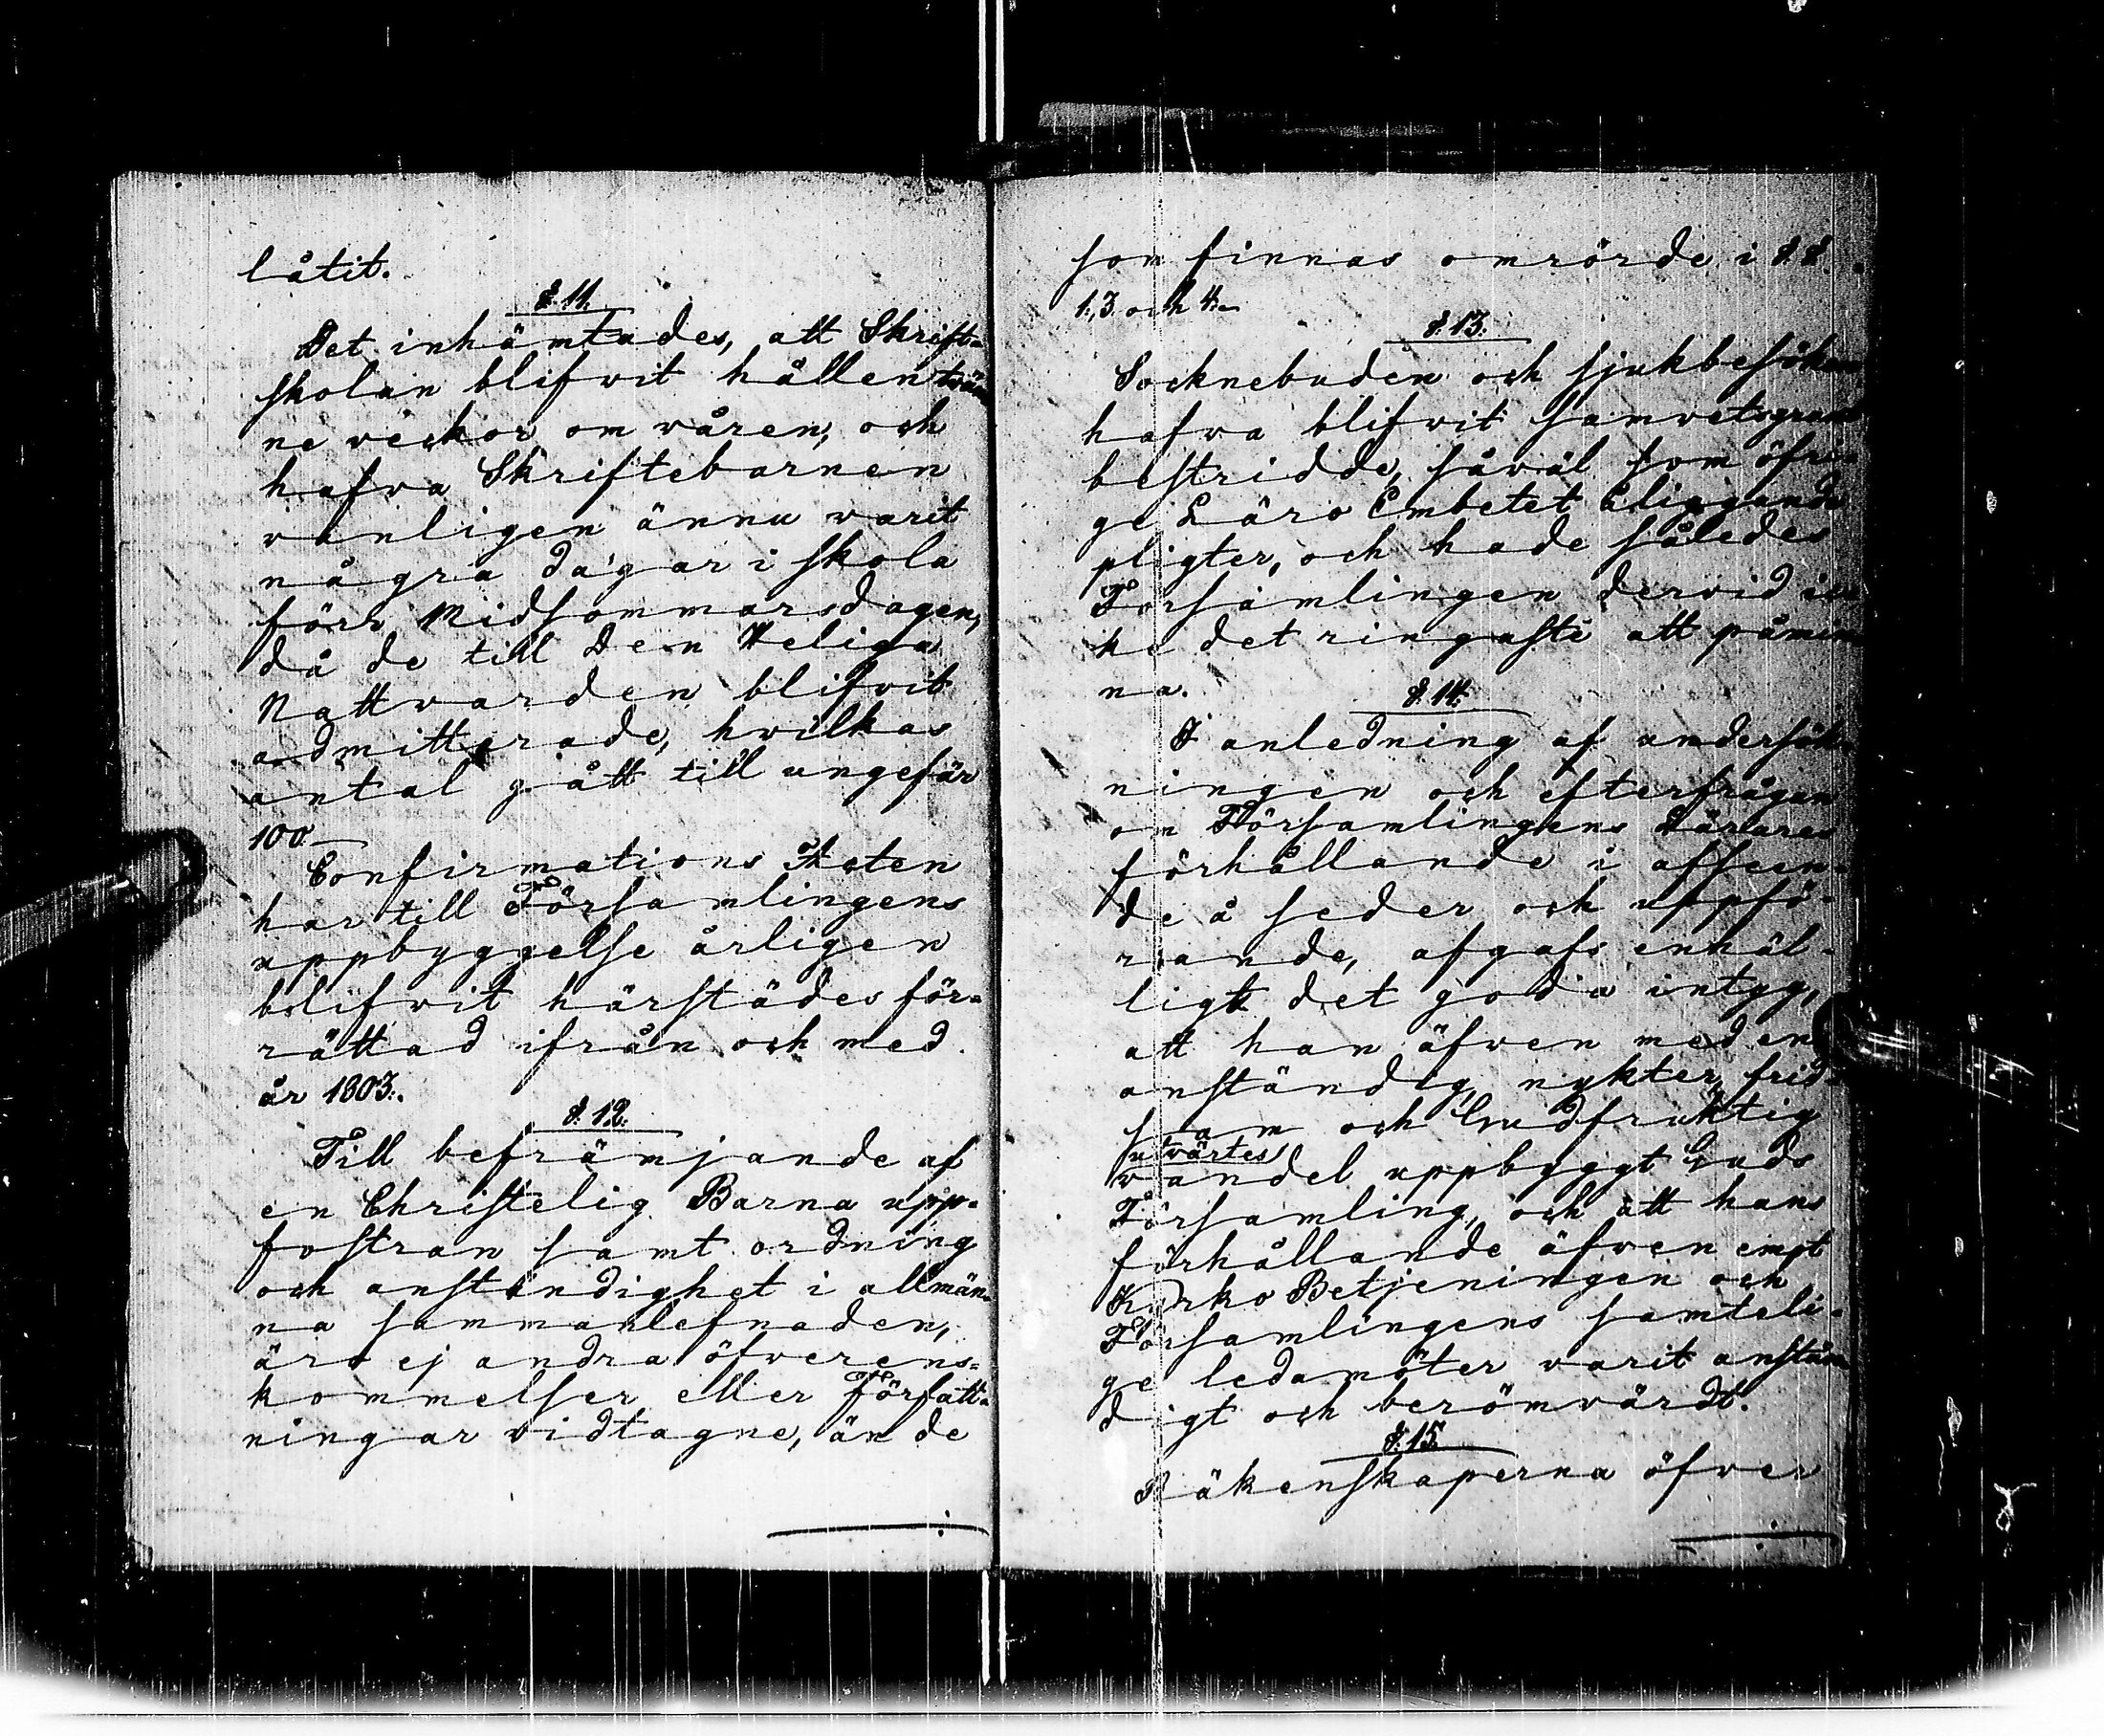 låtit.
§. 11.
Det inhämtades, att Skrift-
skolan blifvit hållen tvän
ne veckor om våren, och
hafva Skriftebarnen
vanligen ännu varit
några dagar i skola
förr Midsommarsdagen,
då de till Den Heliga
Nattvarden blifvit
admitterade, hvilkas
antal gått till ungefär
100
Confirmations Akten
har till Församlingens
uppbyggelse årligen
blifvit härstädes för-
rättad ifrån och med
år 1803.
§. 12.
Till befrämjande af
en Christelig Barna upp-
fostran samt ordning
och anständighet i allmän-
na sammanlefnaden,
äro ej andra öfverens-
kommelser eller författ-
ningar vidtagne, än de
som finnas omrörde i §. §.
1, 3 och 4.
§. 13.
Socknebuden och sjukbesöken
hafva blifvit samvetsgrant
bestridde, såväl som öfri-
ge Läro Embetet åliggande
pligter, och hade således
Församlingen dervid ic
ke det ringaste att påmin
na.
§. 14.
I anledning af undersök-
ningen och efterfrågan
om Församlingens Lärares
förhållande i afseen-
de å seder och uppfö-
rande, afgafs enhäl-
ligt det goda intyg,
att han äfven med en
anständig, nykter, frid-
sam och Gudfruktig
utvärtes
vandel uppbyggt Guds
Församling, och att hans
förhållande äfven emot
Kyrko Betjeningen och
Församlingens samteli-
ge ledamöter varit anstän-
digt och berömvärdt.
§. 15.
Räkenskaperna öfver